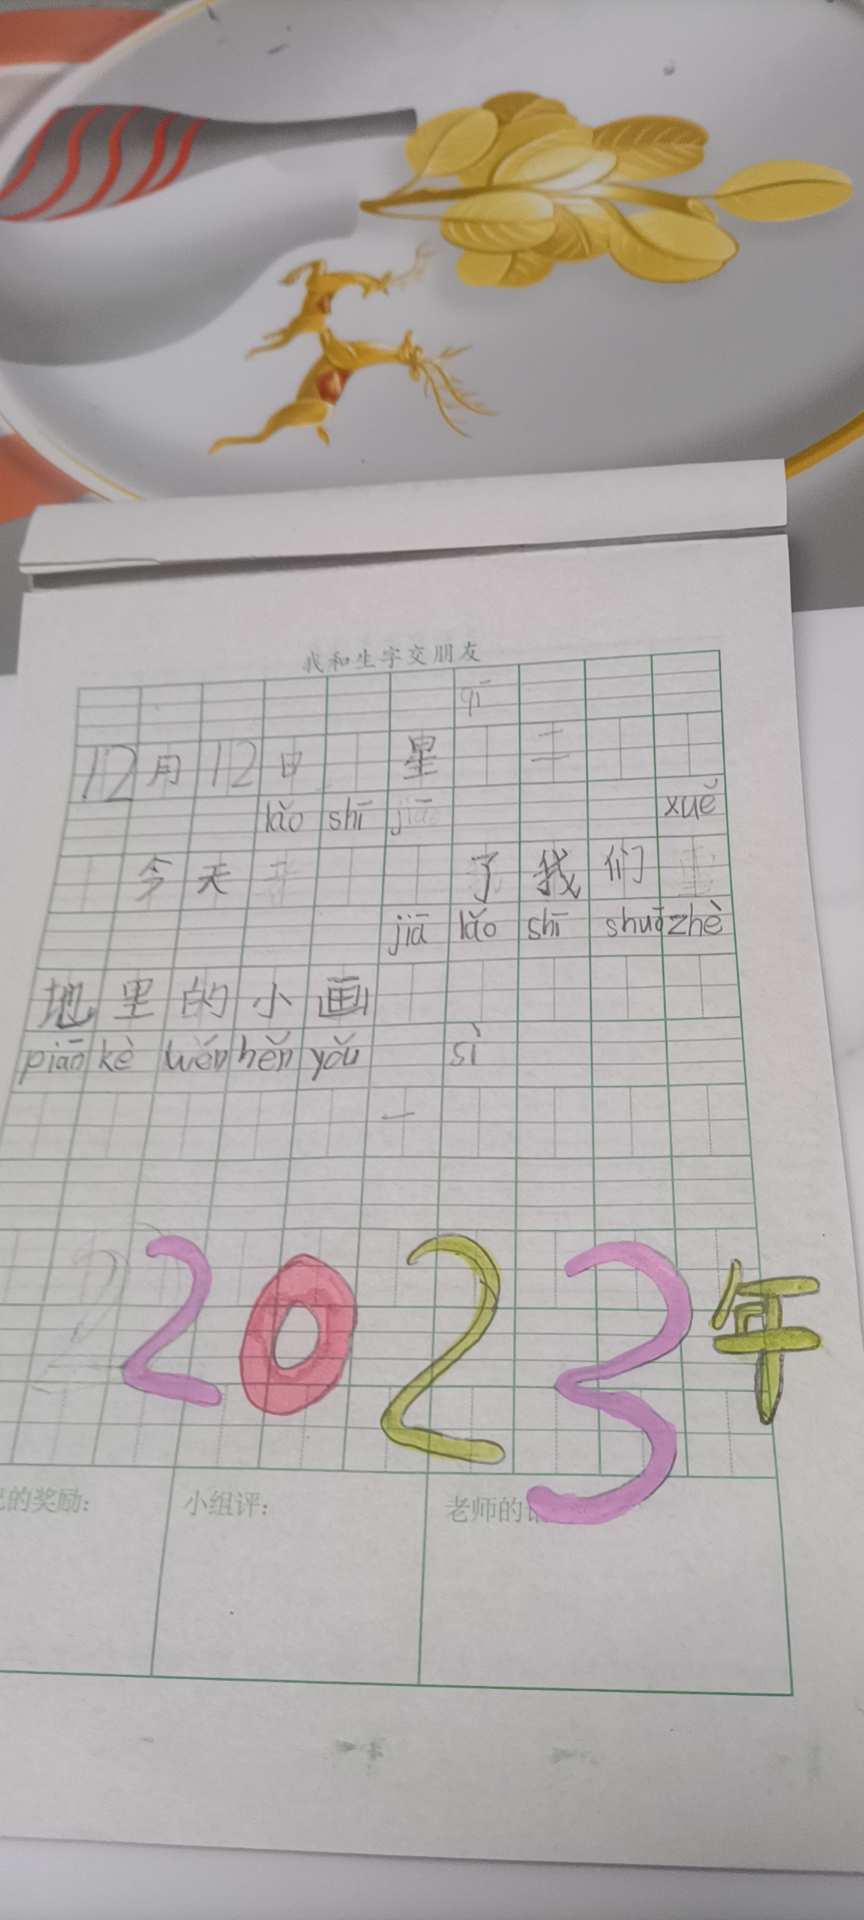 我和生字交朋友
qī
12月12日 星 二
lǎo shī jiāo xuě
今天 了我们
jiā lǎo shī shuō zhè
地里的小画
piān kè wén hěn yǒu sì
一
2023年
的奖励: 小组评: 老师的